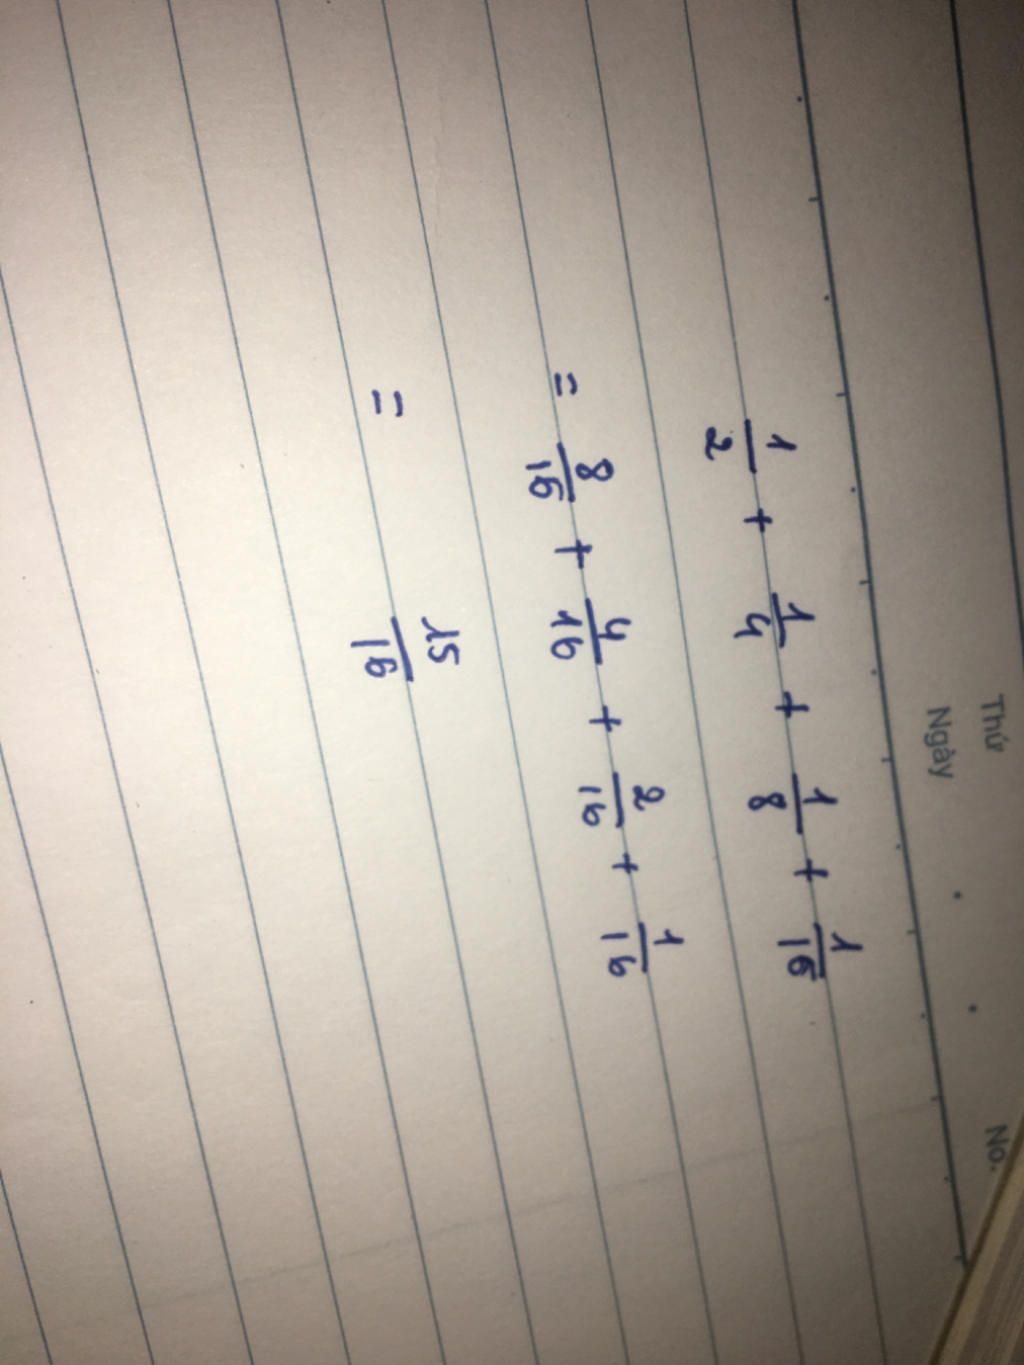 Thứ
Ngày
No.
1/2 + 1/4 + 1/8 + 1/16
= 8/16 + 4/16 + 2/16 + 1/16
= 15/16